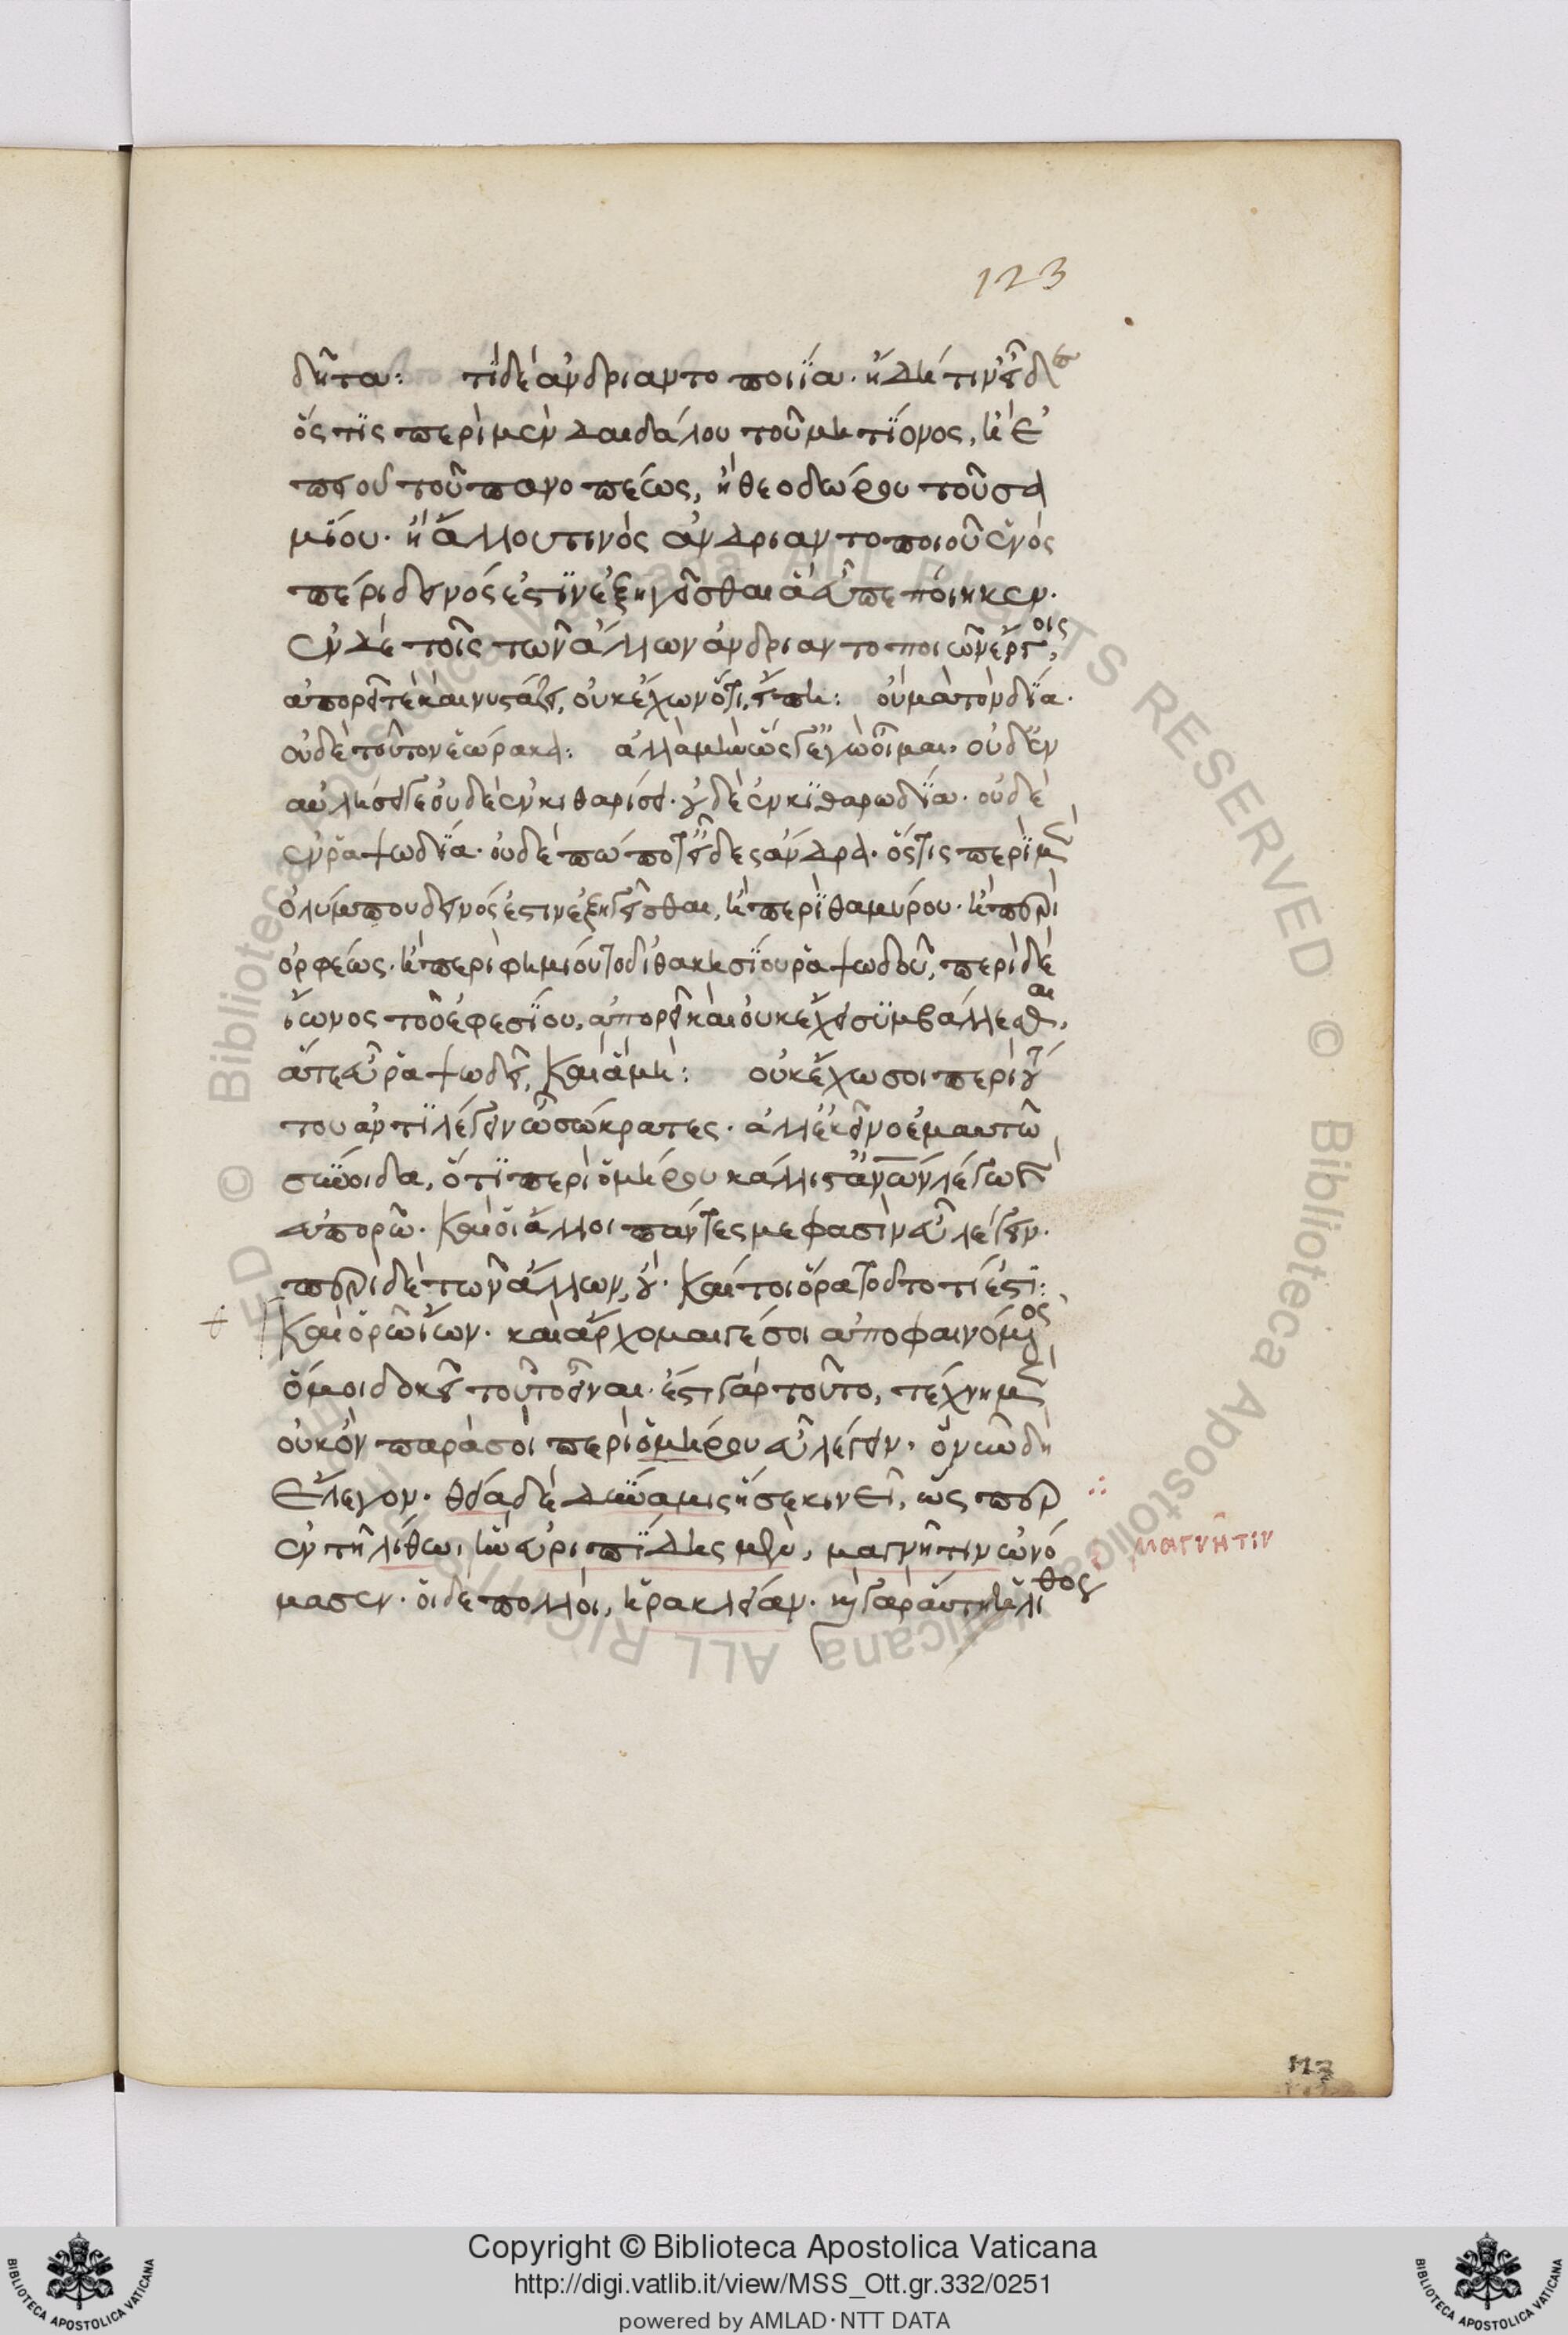 123
δῆτα: τί δὲ ἀνδριαντοποιΐα. ἤδη τιν' εἶδες
ὅςτις περὶ μὲν δαιδάλου τοῦ μητίονος, ἢ ἐ
πειοῦ τοῦ πανοπέως, ἢ θεοδώρου τοῦ σα
μίου. ἢ ἄλλου τινὸς ἀνδριαντοποιοῦ ἑνὸς
πέρι δεινός ἐστιν ἐξηγεῖσθαι ἃ εὖ πεποίηκεν.
ἐν δὲ τοῖς τῶν ἄλλων ἀνδριαντοποιῶν ἔργοις,
ἀπορεῖ τὲ καὶ νυστάζει, οὐκ ἔχων ὅτι εἴπη: οὐ μὰ τὸν δία.
οὐδὲ τοῦτον ἑώρακα: ἀλλὰ μὴν ὥς γ' ἐγὼ οἶμαι. οὐδ' ἐν
αὐλήσει γε οὐδὲ ἐν κιθαρίσει. οὐδὲ ἐν κιθαρωδία. οὐδὲ
ἐν ῥαψωδία. οὐδὲ πώποτ' εἶδες ἄνδρα. ὅςτις περὶ μὲν
ὀλύμπου δεινός ἐστιν ἐξηγεῖσθαι, ἢ περὶ θαμύρου. ἢ περὶ
ὀρφέως. ἢ περὶ φημίου τοῦ ἰθακησίου ῥαψωδοῦ, περὶ δὲ
ἴωνος τοῦ ἐφεσίου, ἀπορεῖ καὶ οὐκ ἔχει συμβάλλεσθαι,
ἅτε εὖ ῥαψωδεῖ, καὶ ἃ μή: οὐκ ἔχω σοι περὶ τού
του ἀντιλέγειν ὦ σώκρατες. ἀλλ' ἐκεῖνο ἐμαυτῶ
σύνοιδα, ὅτι περὶ ὁμήρου κάλλιστ' ἀνθρώπων λέγω καὶ
εὐπορῶ. καὶ οἱ ἄλλοι πάντες με φασὶν εὖ λέγειν.
περὶ δὲ τῶν ἄλλων, οὔ. καίτοι ὅρα τοῦτο τί ἐστι:
καὶ ὁρῶ ἴων. καὶ ἄρχομαι γέ σοι ἀποφαινόμενος
ὅ μοι δοκεῖ τοῦτο εἶναι. ἔστι γὰρ τοῦτο, τέχνη μὲν
οὐκ ὂν παρὰ σοὶ περὶ ὁμήρου εὖ λέγειν. ὃ νῦν δὴ
ἔλεγον. θεία δὲ δύναμις ἥ σε κινεῖ, ὥσπερ
ἐν τῇ λίθω, ἣν εὐριπίδης μὲν, μαγνῆτιν ὠνό
μασεν. οἱ δὲ πολλοὶ, ἡρακλείαν. καὶ γὰρ αὕτη ἡ λίθος
μαγνῆτιν
113
Copyright © Biblioteca Apostolica Vaticana
http://digi.vatlib.it/view/MSS_Ott.gr.332/0251
powered by AMLAD·NTT DATA
BIBLIOTECA APOSTOLICA VATICANA
BIBLIOTECA APOSTOLICA VATICANA
© Biblioteca Apostolica Vaticana ALL RIGHTS RESERVED